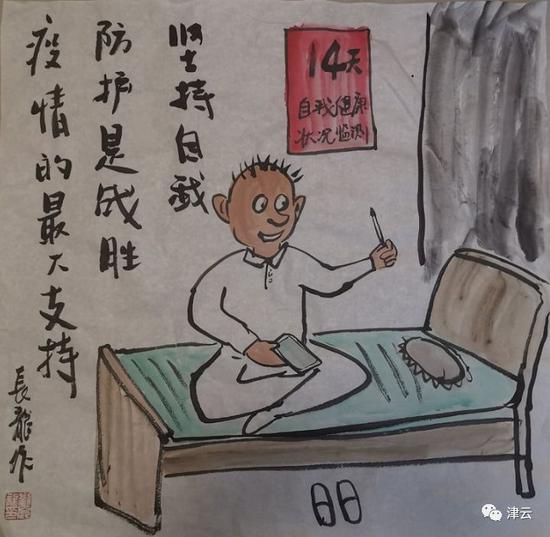 14天
自我健康
状况监测
坚持自我
防护是战胜
疫情的最大支持
長龍作
津云